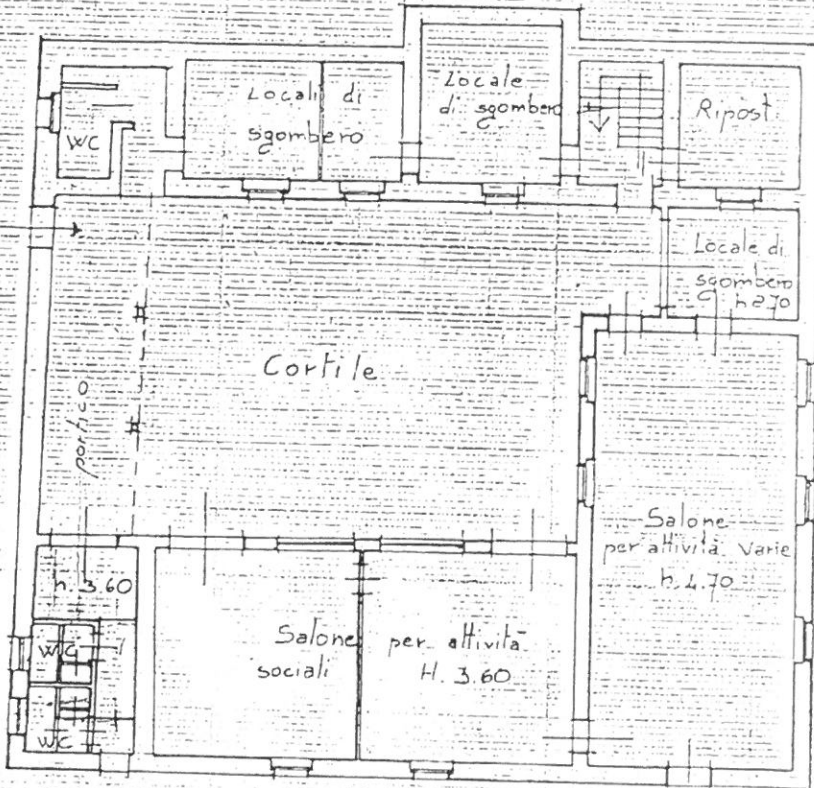 WC
Locali di
sgombero
Locale
di sgombero
Ripost.
Locale di
sgombero
h 2.70
Cortile
portico
Salone
per attività varie
h. 4.70
h. 3.60
Salone per attività
sociali H. 3.60
WC
WC